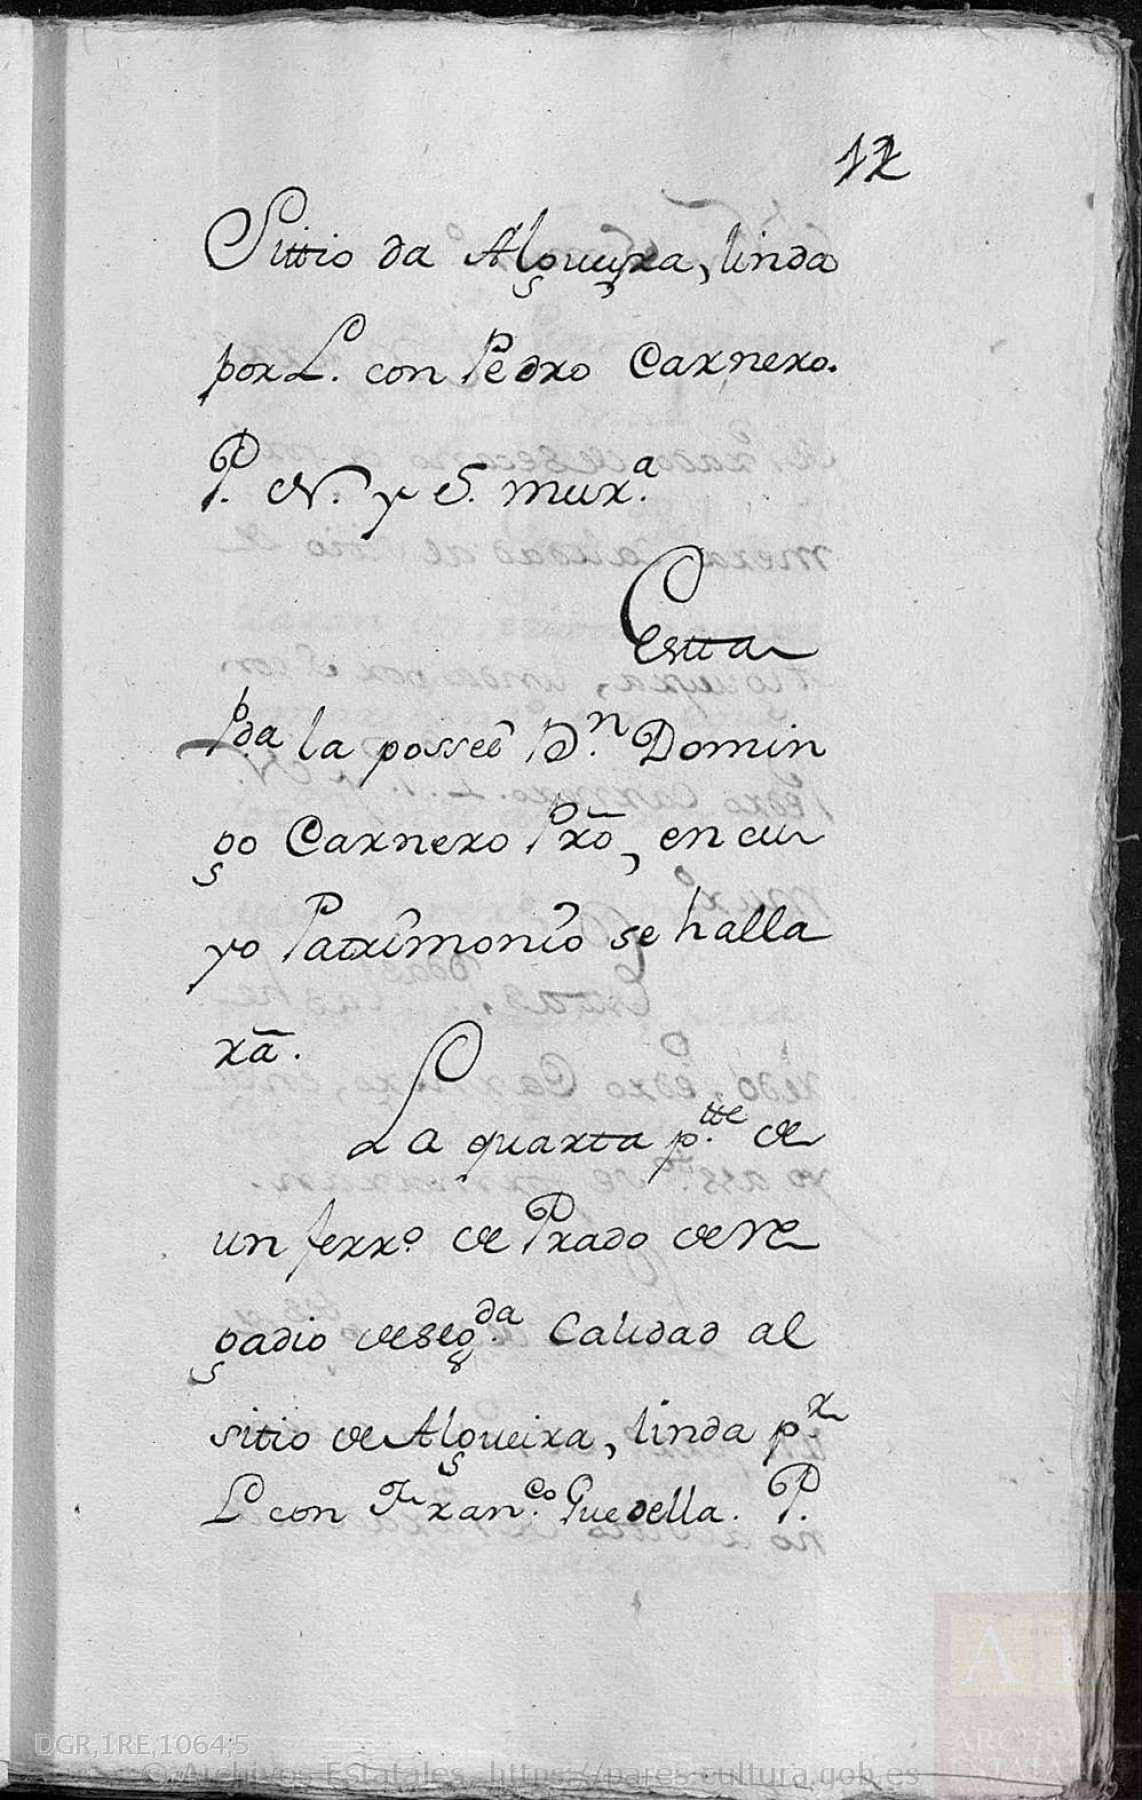 12
Sittio da Algueyra, linda
por L. con Pedro Carnero.
P. N. y S. mur.ª
Estta
Pda la posseê Dn. Domin
go Carnero Prō, en cu
yo Patrimonio se halla
rā.
La quarta p.tte de
un ferr.º de Prado de Re
gadio de seg.da Calidad al
sitio de Algueira, linda p.r
L con Fran.co Guedella. P.
DGR,1RE,1064,5
© Archivos Estatales, https://pares.cultura.gob.es